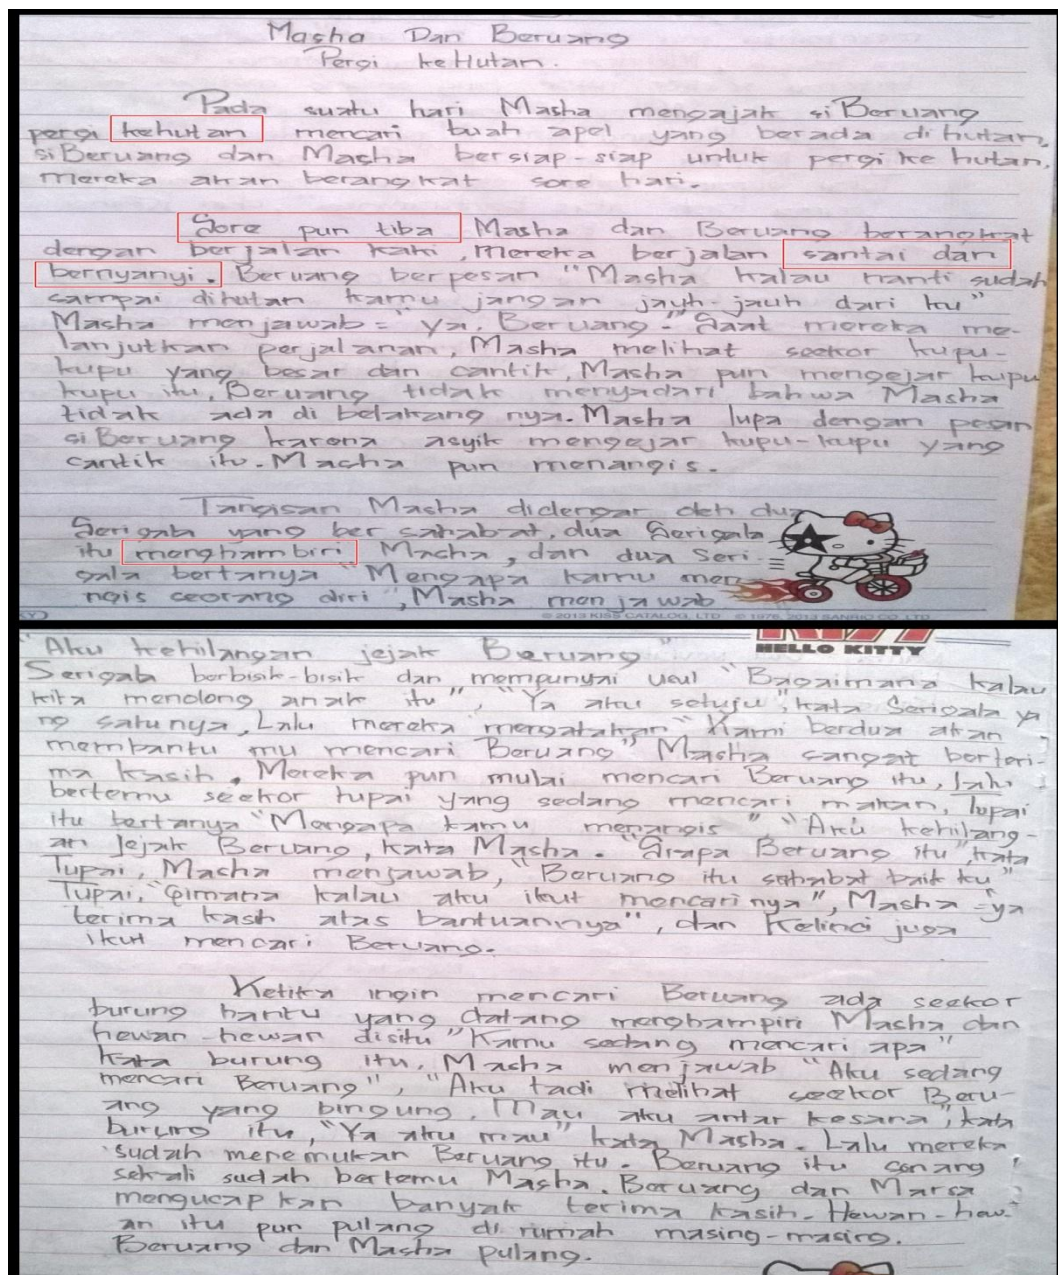 Masha Dan Beruang
Pergi keHutan.
Pada suatu hari Masha mengajak siBeruang
pergi kehutan mencari buah apel yang berada dihutan.
siBeruang dan Masha bersiap-siap untuk pergi ke hutan.
mereka akan berangkat sore hari.
Sore pun tiba Masha dan Beruang berangkat
dengan berjalan kaki, mereka berjalan santai dan
bernyanyi. Beruang berpesan "Masha kalau nanti sudah
sampai dihutan kamu jangan jauh-jauh dari ku"
Masha menjawab = "ya. Beruang." Saat mereka me-
lanjutkan perjalanan, Masha melihat seekor kupu-
kupu yang besar dan cantik, Masha pun mengejar kupu
kupu itu, Beruang tidak menyadari bahwa Masha
tidak ada di belakang nya. Masha lupa dengan pesan
siBeruang karena asyik mengejar kupu-kupu yang
cantik itu. Masha pun menangis.
Tangisan Masha didengar oleh dua
Serigala yang ber sahabat, dua Serigala
itu menghambiri Macha, dan dua Seri-
gala bertanya "Mengapa kamu men
ngis seorang diri", Masha menjawab
© 2013 KISS CATALOG, LTD © 1976, 2013 SANRIO CO., LTD
HELLO KITTY
"Aku kehilangan jejak Beruang"
Serigala berbisik-bisik dan mempunyai usul "Bagaimana kalau
kita menolong anak itu", "Ya aku setuju", kata Serigala ya
ng satunya, Lalu mereka mengatakan "Kami berdua akan
membantu mu mencari Beruang" Masha sangat berteri-
ma kasih. Mereka pun mulai mencari Beruang itu, lalu
bertemu seekor tupai yang sedang mencari makan, Tupai
itu bertanya "Mengapa kamu menangis", "Aku kehilang-
an Jejak Beruang, kata Masha. "Siapa Beruang itu", kata
Tupai, Masha menjawab, "Beruang itu sahabat baik ku"
Tupai, "gimana kalau aku ikut mencari nya", Masha = "ya
terima kasih atas bantuannya", dan Kelinci juga
ikut mencari Beruang.
Ketika ingin mencari Beruang ada seekor
burung hantu yang datang menghampiri Masha dan
hewan-hewan disitu "Kamu sedang mencari apa"
kata burung itu, Masha menjawab "Aku sedang
mencari Beruang", "Aku tadi melihat seekor Beru-
ang yang bingung, Mau aku antar kesana", kata
burung itu, "Ya aku mau" kata Masha. Lalu mereka
sudah menemukan Beruang itu. Beruang itu senang
sekali sudah bertemu Masha. Beruang dan Marsa
mengucap kan banyak terima kasih. Hewan-hew-
an itu pun pulang di rumah masing-masing.
Beruang dan Masha pulang.